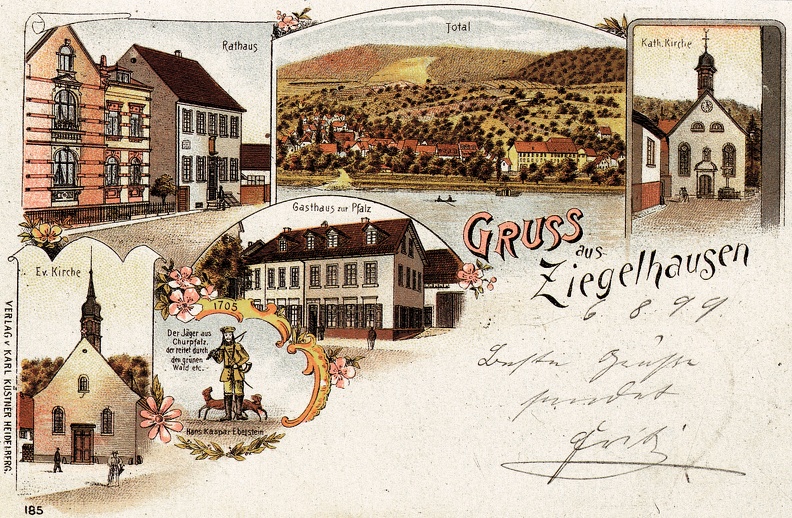 Rathaus
Total
Kath. Kirche
Gasthaus zur Pfalz
GRUSS
aus
Ziegelhausen
6. 8. 99.
Beste Grüße
sendet
Fritz
Ev. Kirche
1705
Der Jäger aus
Churpfalz,
der reitet durch
den grünen
Wald etc.
Hans Kaspar Eberstein
VERLAG v. KARL KÜSTNER HEIDELBERG.
185